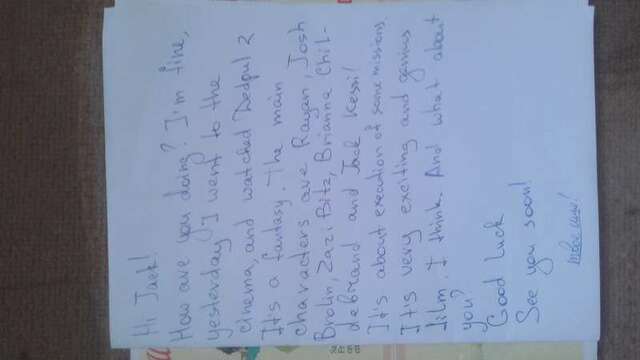 Hi Jack!
How are you doing? I'm fine,
yesterday I went to the
cinema, and watched Dedpul 2
It's a fantasy. The main
characters are Rayan, Josh
Brolin, Zazi Bitz, Brianna Chil-
debrand and Jack Kessi!
It's about execution of some missions.
It's very exciting and genius
film. I think. And what about
you?
Good luck
See you soon!